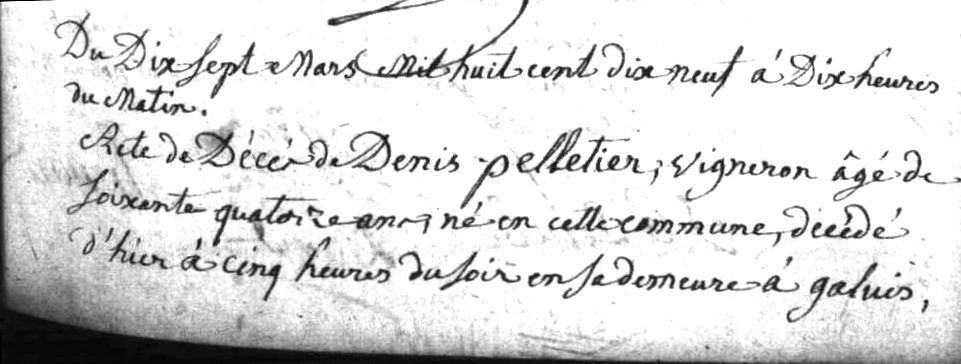 Du Dix sept Mars Mil huit cent dix neuf à Dix heures
du Matin.
Acte de Décé de Denis pelletier, vigneron âgé de
soixante quatorze ans, né en cette commune, décédé
d'hier à cinq heures du soir en sa demeure à galuis,